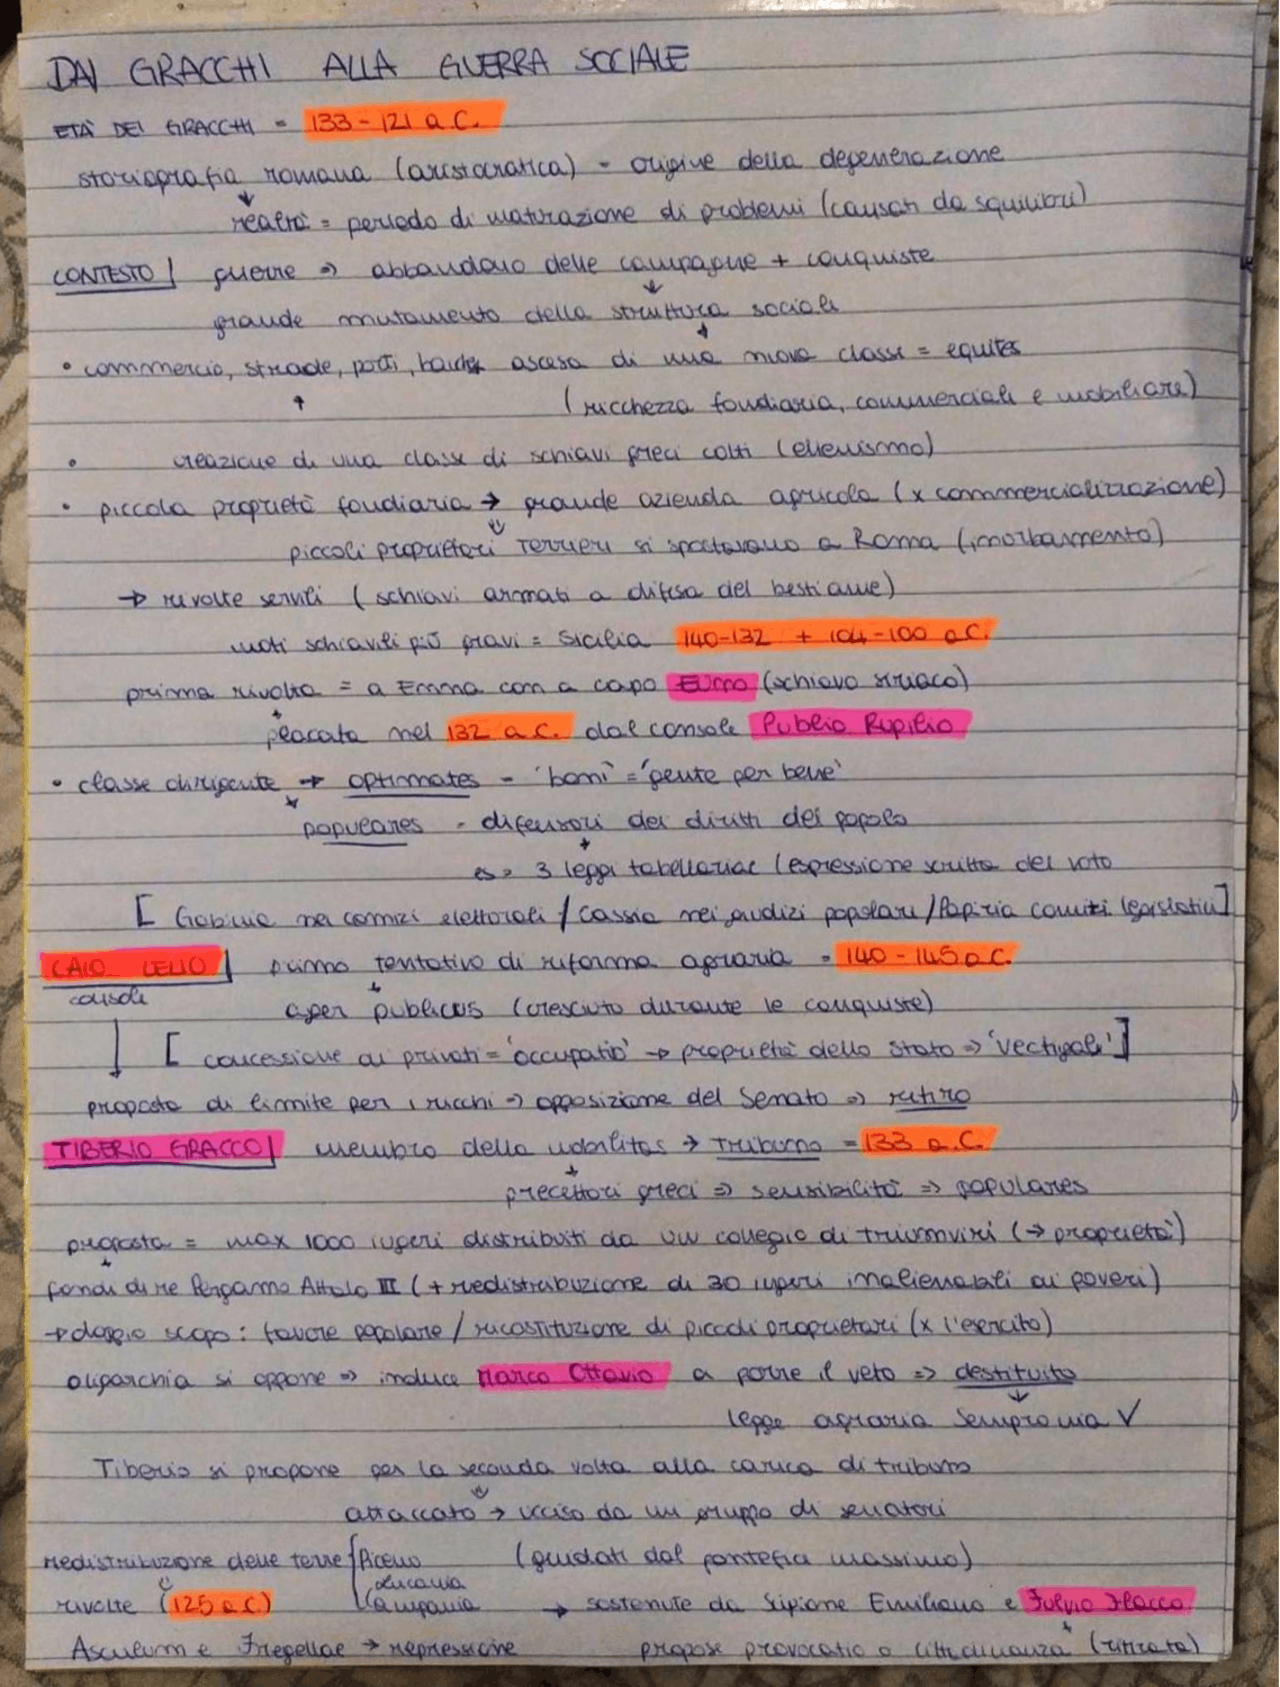 DAI GRACCHI ALLA GUERRA SOCIALE
ETÀ DEI GRACCHI = 133-121 a.C.
storiografia romana (aristocratica) = origine della degenerazione
↓
realtà = periodo di maturazione di problemi (causati da squilibri)
CONTESTO | guerre => abbandono delle campagne + conquiste
↓
grande mutamento della struttura sociale
↓
• commercio, strade, porti, banche ascesa di una nuova classe = equites
↑ (ricchezza fondiaria, commerciale e mobiliare)
• creazione di una classe di schiavi greci colti (ellenismo)
• piccola proprietà fondiaria → grande azienda agricola (x commercializzazione)
⇓
piccoli proprietari terrieri si spostavano a Roma (inurbamento)
→ rivolte servili (schiavi armati a difesa del bestiame)
moti schiavili più gravi = Sicilia 140-132 + 104-100 a.C.
prima rivolta = a Enna con a capo Euno (schiavo siriaco)
↓
placata nel 132 a.C. dal console Publio Rupilio
• classe dirigente → optimates = 'boni' = 'gente per bene'
↓
populares - difensori dei diritti del popolo
↓
es = 3 leggi tabellariae (espressione scritta del voto
[ Gabinia nei comizi elettorali / Cassia nei giudizi popolari / Papiria comizi legislativi]
CAIO LELIO | primo tentativo di riforma agraria = 140-145 a.C.
console ↓
ager publicus (cresciuto durante le conquiste)
↓ [ concessione ai privati = 'occupatio' → proprietà dello stato => 'vectigali']
proposta di limite per i ricchi => opposizione del Senato => ritiro
TIBERIO GRACCO | membro della nobilitas → tribuno = 133 a.C.
↓
precettori greci => sensibilità => populares
proposta = max 1000 iugeri distribuiti da un collegio di triumviri (→ proprietà)
↓
fondi di re Pergamo Attalo III (+ redistribuzione di 30 iugeri inalienabili ai poveri)
→ doppio scopo: favore popolare / ricostituzione di piccoli proprietari (x l'esercito)
oligarchia si oppone => induce Marco Ottavio a porre il veto => destituito
↓
legge agraria Sempronia ✓
Tiberio si propone per la seconda volta alla carica di tribuno
⇓
attaccato → ucciso da un gruppo di senatori
redistribuzione delle terre { Piceno (guidati dal pontefice massimo)
⇓ Lucania
rivolte (125 a.C.) Campania → sostenute da Sipione Emiliano e Fulvio Flacco
↓
Asculum e Fregellae → repressione propose provocatio o cittadinanza (ritirata)